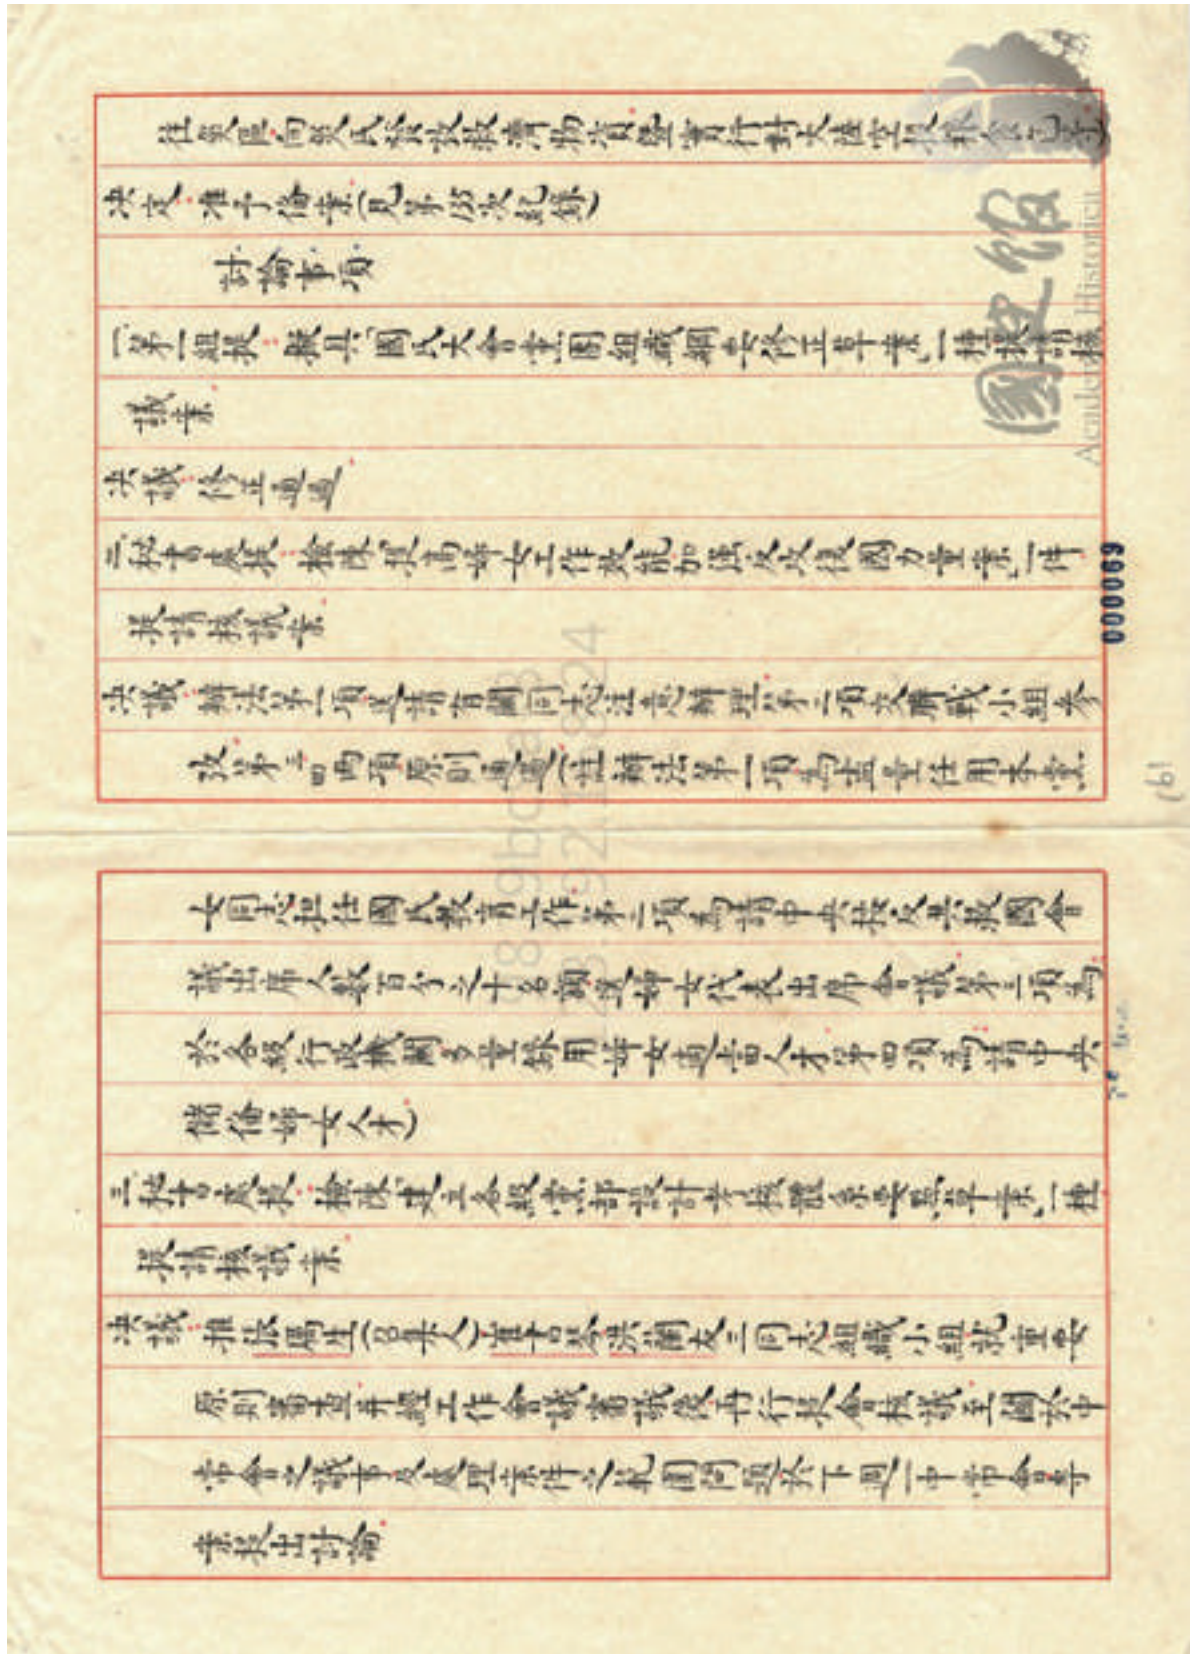 往災區向災民投放救濟物資暨實行對大陸空投糧食
決定：准予備案（見第155次紀錄）
討論事項
一、第一組提：擬具「國民大會黨團組織綱要修正草案」一種提請核
議案
決議：修正通過
二、秘書處提：檢陳「提高婦女工作效能加強反攻復國力量案」一件
提請核議案
決議：辦法第一項送請有關同志注意辦理第二項交聯戰小組參
考第三四兩項原則通過（註辦法第一項為盡量任用本黨
女同志担任國民教育工作第二項為請中央按反共救國會
議出席人數百分之十名額選婦女代表出席會議第三項為
於各級行政機關多量錄用婦女適當人才第四項為請中央
儲備婦女人才）
三、秘書處提：檢陳「建立各級黨部設計考核體系要點草案」一種
提請核議案
決議：推張厲生（召集人）崔書琴洪蘭友三同志組織小組就重要
原則審查并經工作會議審議後再行提會核議至關於中
常會之議事及處理案件之範圍問題於下週一中常會專
案提出討論
國史館
Academia Historica
000069
161